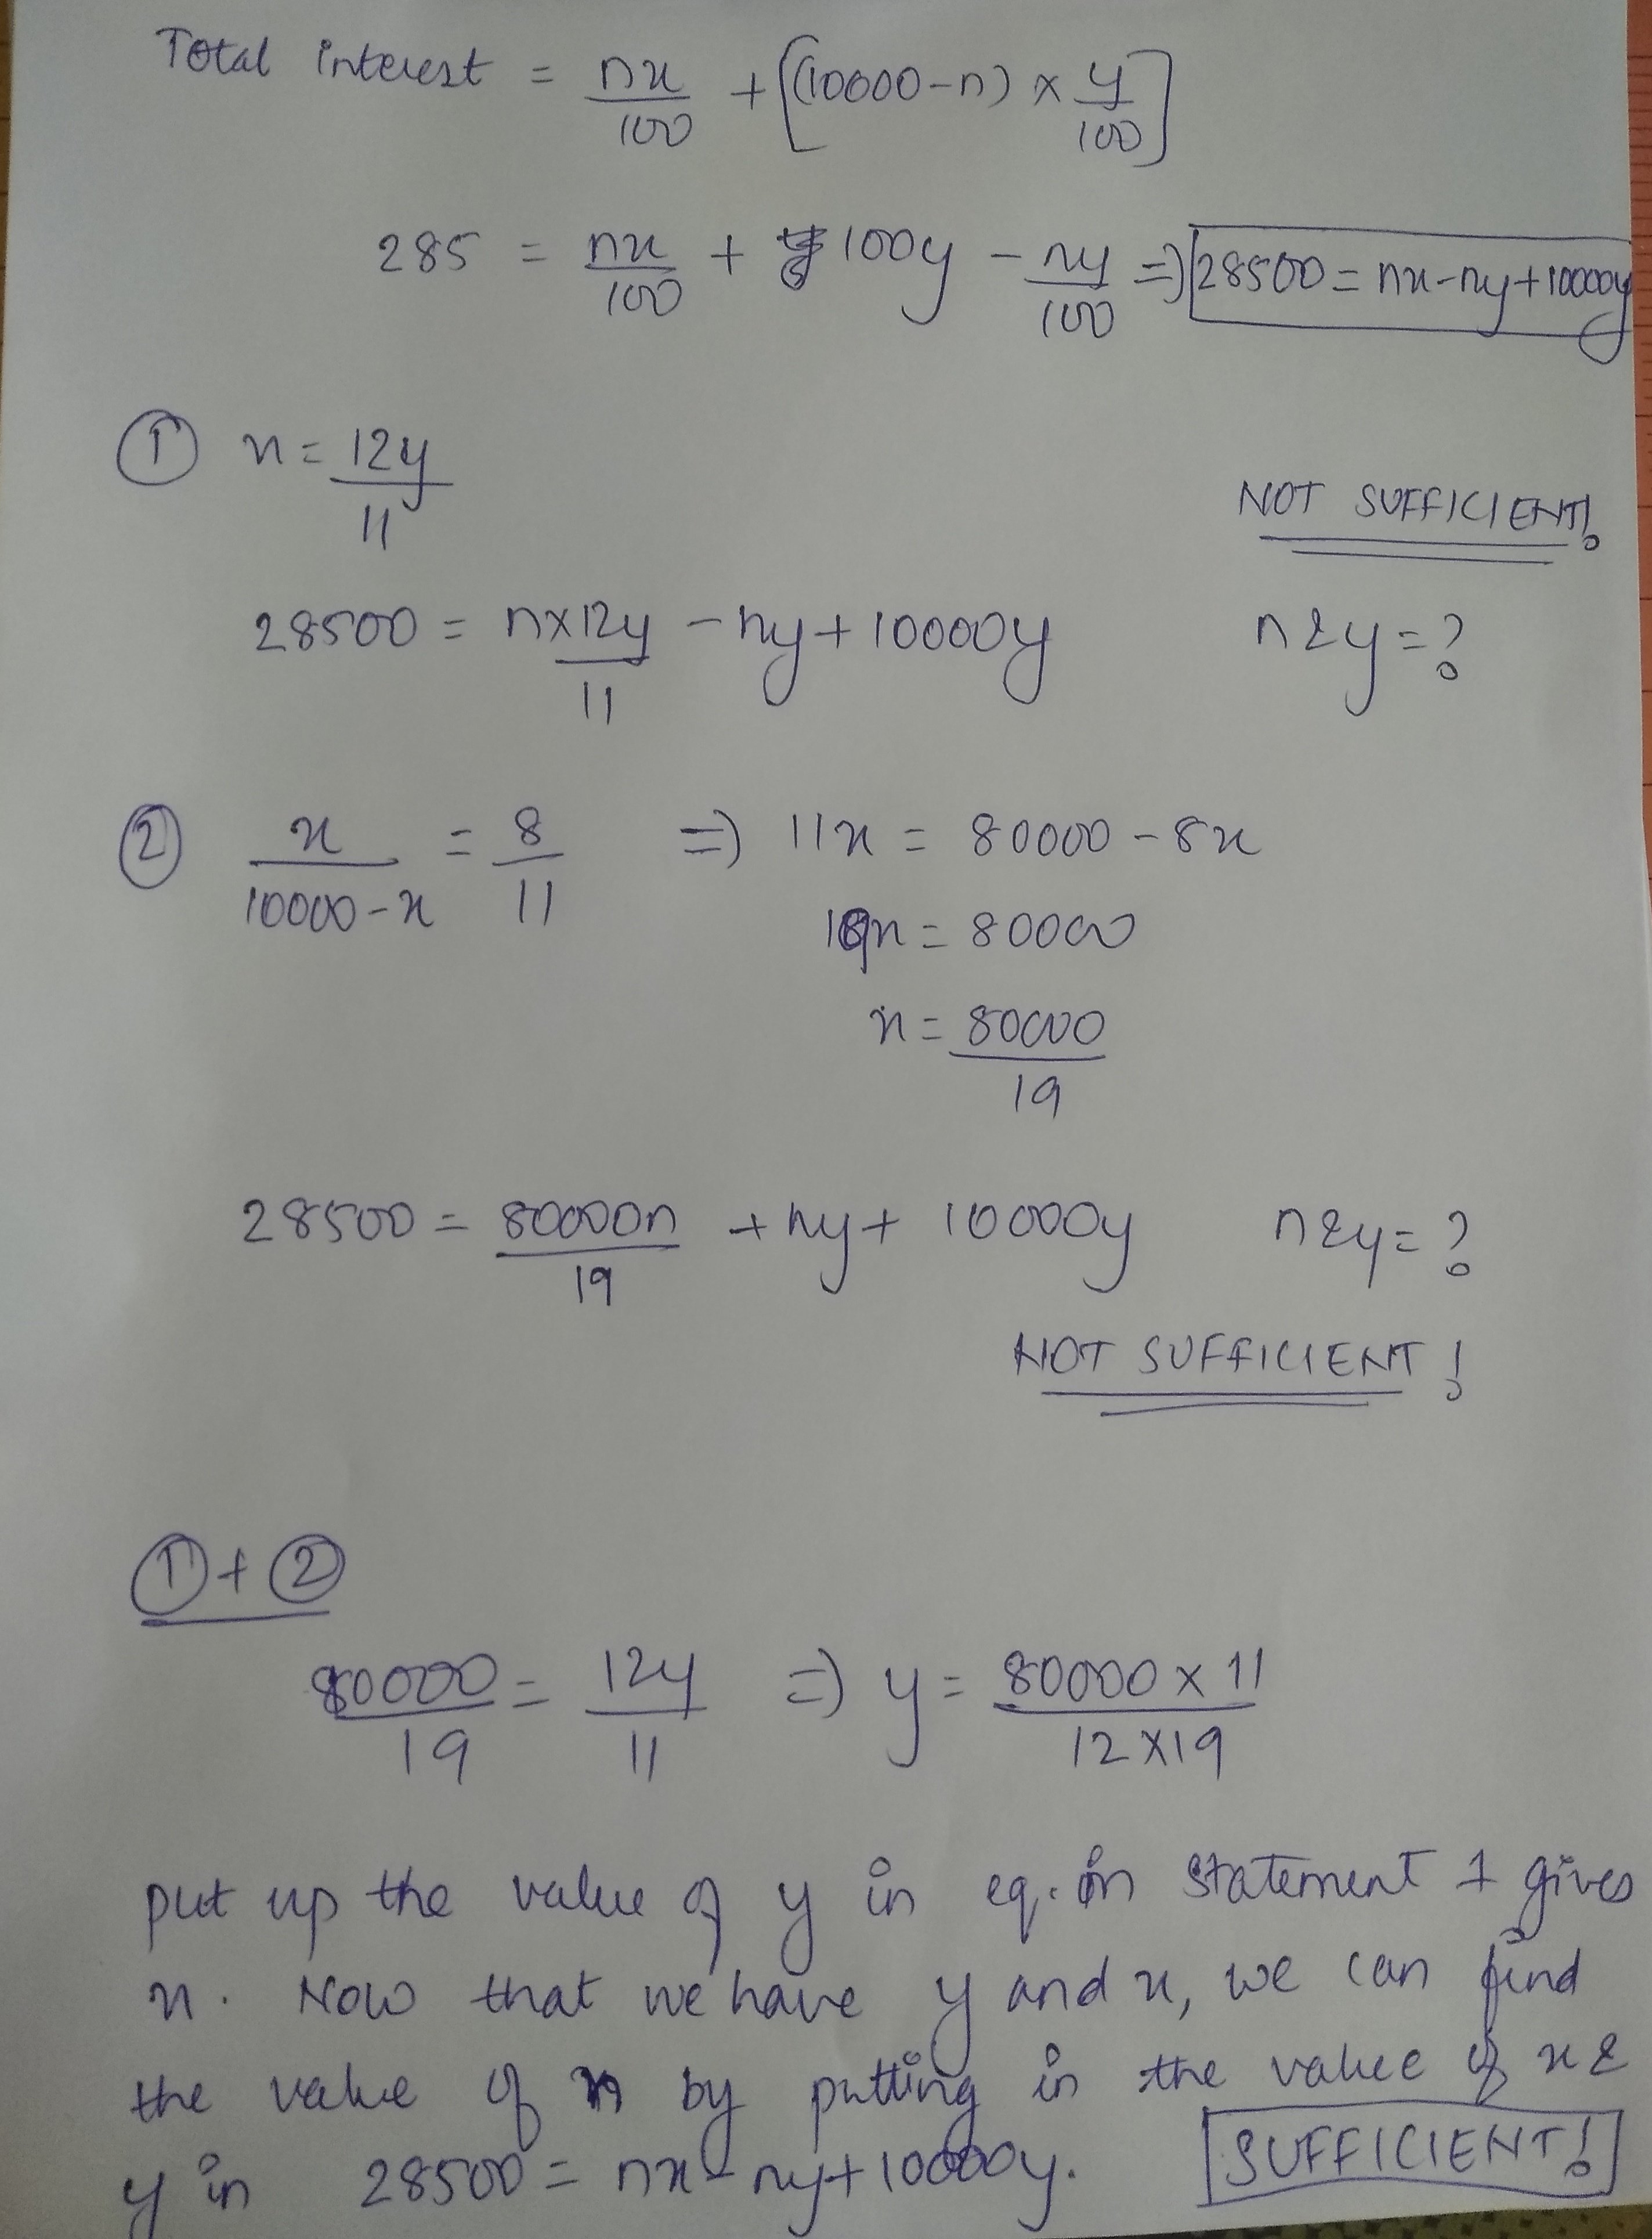 Total interest = nx/100 + [(10000-n) × y/100]
285 = nx/100 + 100y - ny/100 => 28500 = nx-ny+10000y
① x = 12y/11
NOT SUFFICIENT!
28500 = n×12y/11 - ny + 10000y n & y = ?
② x/(10000-x) = 8/11 => 11x = 80000 - 8x
19x = 80000
x = 80000/19
28500 = 80000n/19 + ny + 10000y n & y = ?
NOT SUFFICIENT!
① + ②
80000/19 = 12y/11 => y = 80000 × 11/12×19
put up the value of y in eq. in statement 1 gives
x. Now that we have y and x, we can find
the value of n by putting in the value of x &
y in 28500 = nx - ny + 10000y. SUFFICIENT!